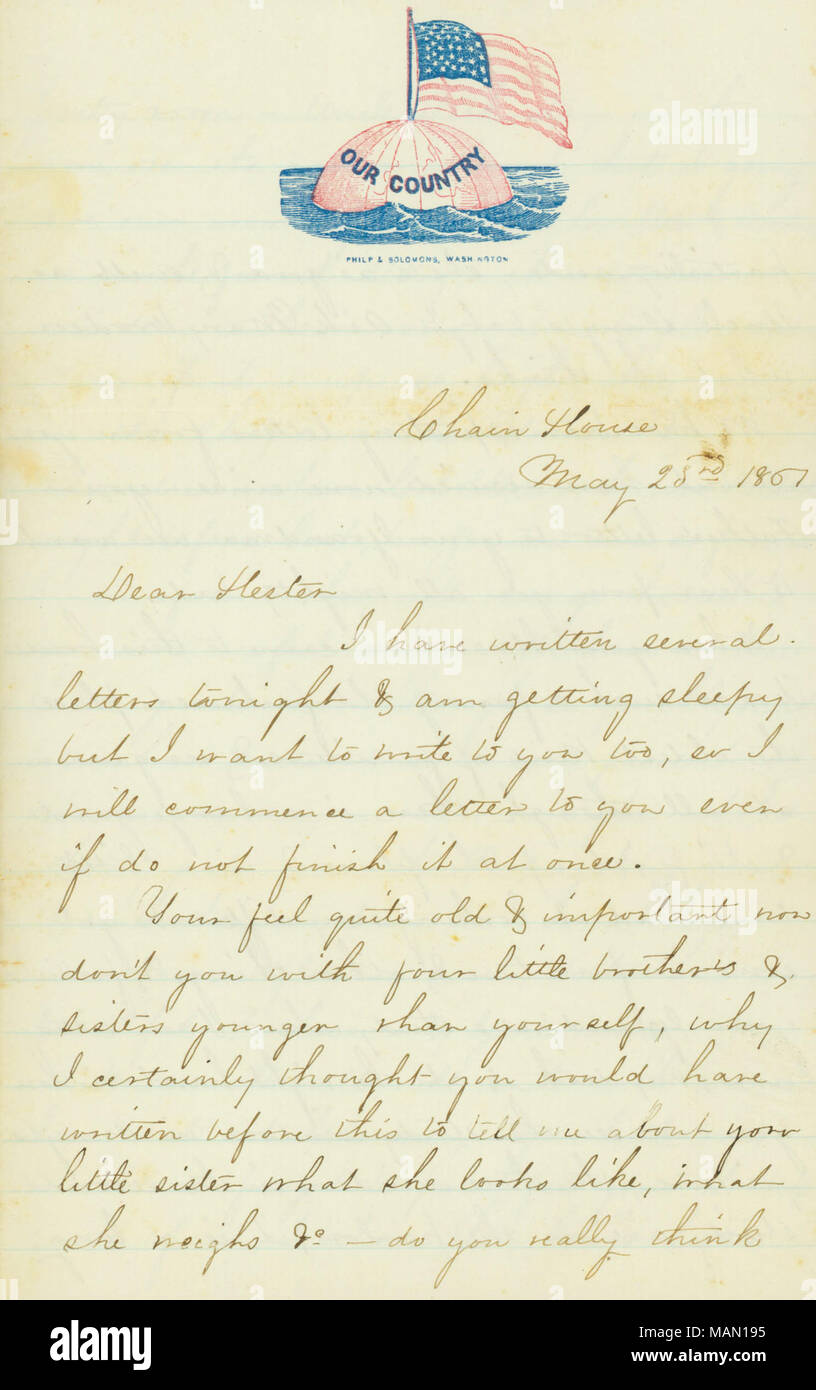 OUR COUNTRY
PHILP & SOLOMONS, WASHINGTON
Chain House
May 23rd 1861
Dear Hester
I have written several
letters tonight & am getting sleepy
but I want to write to you too, so I
will commence a letter to you even
if do not finish it at once.
Your feel quite old & important now
don't you with four little brother's &
sisters younger than yourself, why
I certainly thought you would have
written before this to tell me about your
little sister what she looks like, what
she weighs &c — do you really think
alamy stock photo
MAN195
www.alamy.com